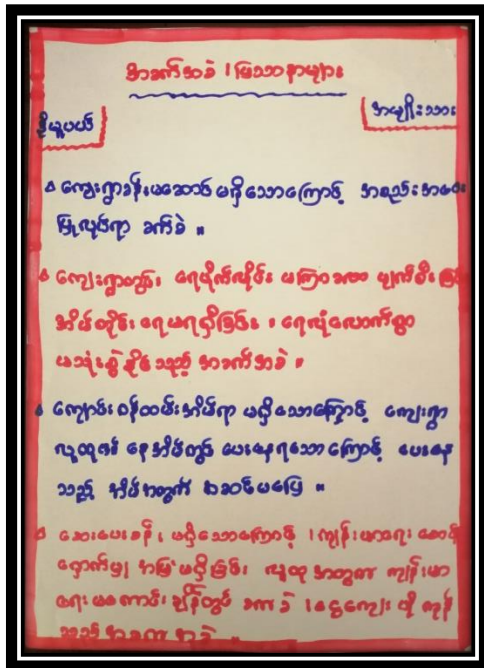 အခက်အခဲ ၊ ပြဿနာများ
ဒိုယူပယ်
အမျိုးသား
ကျေးရွာခန်းမဆောင် မရှိသောကြောင့် အစည်းအဝေး
ပြုလုပ်ရာ ခက်ခဲ ။
ကျေးရွာတွင်း ရေပိုက်လိုင်း မကြာခဏ ပျက်စီးခြင်း
အိမ်တိုင်း ရေမရရှိခြင်း ၊ ရေလုံလောက်စွာ
မသုံးစွဲနိုင်သည့် အခက်အခဲ ။
ကျောင်းဝန်ထမ်းအိမ်ရာ မရှိသောကြောင့် ကျေးရွာ
လူထု၏ နေအိမ်တွင် ပေးနေရသောကြောင့် ပေးနေ
သည့် အိမ်အတွက် အဆင်မပြေ ။
ဆေးပေးခန်း မရှိသောကြောင့် ၊ ကျန်းမာရေး စောင့်
ရှောက်မှု အမြဲ မရှိခြင်း လူထု အတွက် ကျန်းမာ
ရေး မကောင်းချိန်တွင် ခက်ခဲ ၊ ငွေကြေး ပို ကုန်
သည့် အခက်အခဲ ။